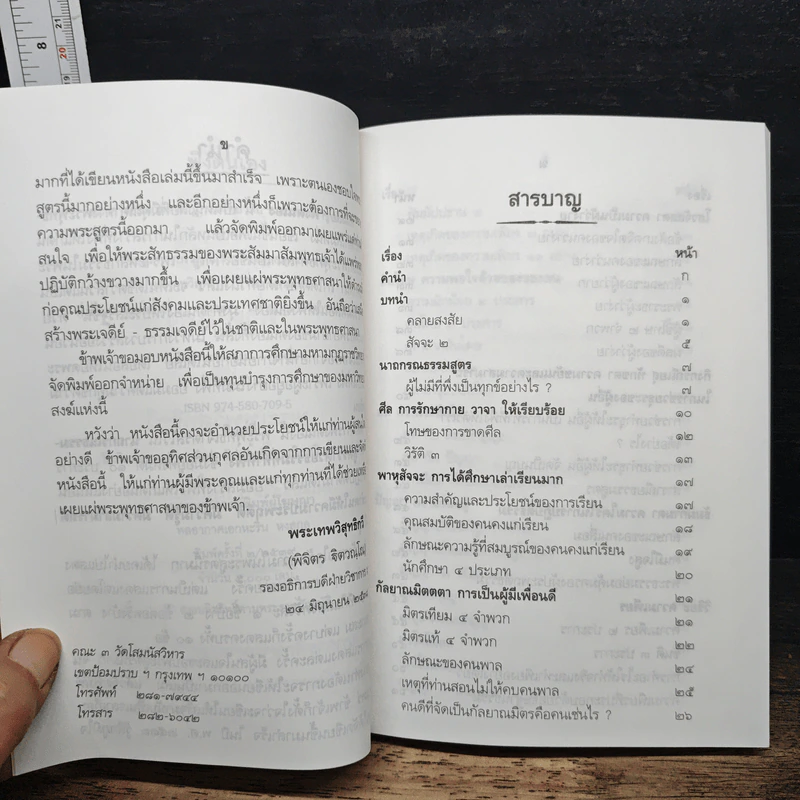 8
21
20
19
ข
มากที่ได้เขียนหนังสือเล่มนี้ขึ้นมาสำเร็จ เพราะตนเองชอบใจพระ
สูตรนี้มากอย่างหนึ่ง และอีกอย่างหนึ่งก็เพราะต้องการที่จะ
ความพระสูตรนี้ออกมา แล้วจัดพิมพ์ออกมาเผยแพร่แก่
สนใจ เพื่อให้พระสัทธรรมของพระสัมมาสัมพุทธเจ้าได้แพร่
ปฏิบัติกว้างขวางมากขึ้น เพื่อเผยแผ่พระพุทธศาสนาให้
ก่อคุณประโยชน์แก่สังคมและประเทศชาติยิ่งขึ้น อันถือว่า
สร้างพระเจดีย์ - ธรรมเจดีย์ไว้ในชาติและในพระพุทธศาสนา
ข้าพเจ้าขอมอบหนังสือนี้ให้สภาการศึกษามหามกุฏราชวิทย
จัดพิมพ์ออกจำหน่าย เพื่อเป็นทุนบำรุงการศึกษาของมหาวิท
สงฆ์แห่งนี้
หวังว่า หนังสือนี้คงจะอำนวยประโยชน์ให้แก่ท่านผู้สน
อย่างดี ข้าพเจ้าขออุทิศส่วนกุศลอันเกิดจากการเขียนและจัด
หนังสือนี้ ให้แก่ท่านผู้มีพระคุณและแก่ทุกท่านที่ได้ช่วย
เผยแผ่พระพุทธศาสนาของข้าพเจ้า.
พระเทพวิสุทธิกวี
(พิจิตร ฐิตวณฺโณ)
รองอธิการบดีฝ่ายวิชาการ
๒๔ มิถุนายน
คณะ ๓ วัดโสมนัสวิหาร
เขตป้อมปราบ ฯ กรุงเทพ ฯ ๑๐๑๐๐
โทรศัพท์ ๒๘๑-๗๙๔๔
โทรสาร ๒๘๒-๖๐๔๒
สารบาญ
เรื่อง หน้า
คำนำ ก
บทนำ ๑
คลายสงสัย ๑
สัจจะ ๒ ๕
นาถกรณธรรมสูตร ๗
ผู้ไม่มีที่พึ่งเป็นทุกข์อย่างไร ? ๗
ศีล การรักษากาย วาจา ให้เรียบร้อย ๑๐
โทษของการขาดศีล ๑๒
วิรัติ ๓ ๑๓
พาหุสัจจะ การได้ศึกษาเล่าเรียนมาก ๑๗
ความสำคัญและประโยชน์ของการเรียน ๑๗
คุณสมบัติของคนคงแก่เรียน ๑๘
ลักษณะความรู้ที่สมบูรณ์ของคนคงแก่เรียน ๑๙
นักศึกษา ๔ ประเภท ๒๐
กัลยาณมิตตตา การเป็นผู้มีเพื่อนดี ๒๑
มิตรเทียม ๔ จำพวก ๒๑
มิตรแท้ ๔ จำพวก ๒๒
ลักษณะของคนพาล ๒๔
เหตุที่ท่านสอนไม่ให้คบคนพาล ๒๕
คนดีที่จัดเป็นกัลยาณมิตรคือคนเช่นไร ? ๒๖